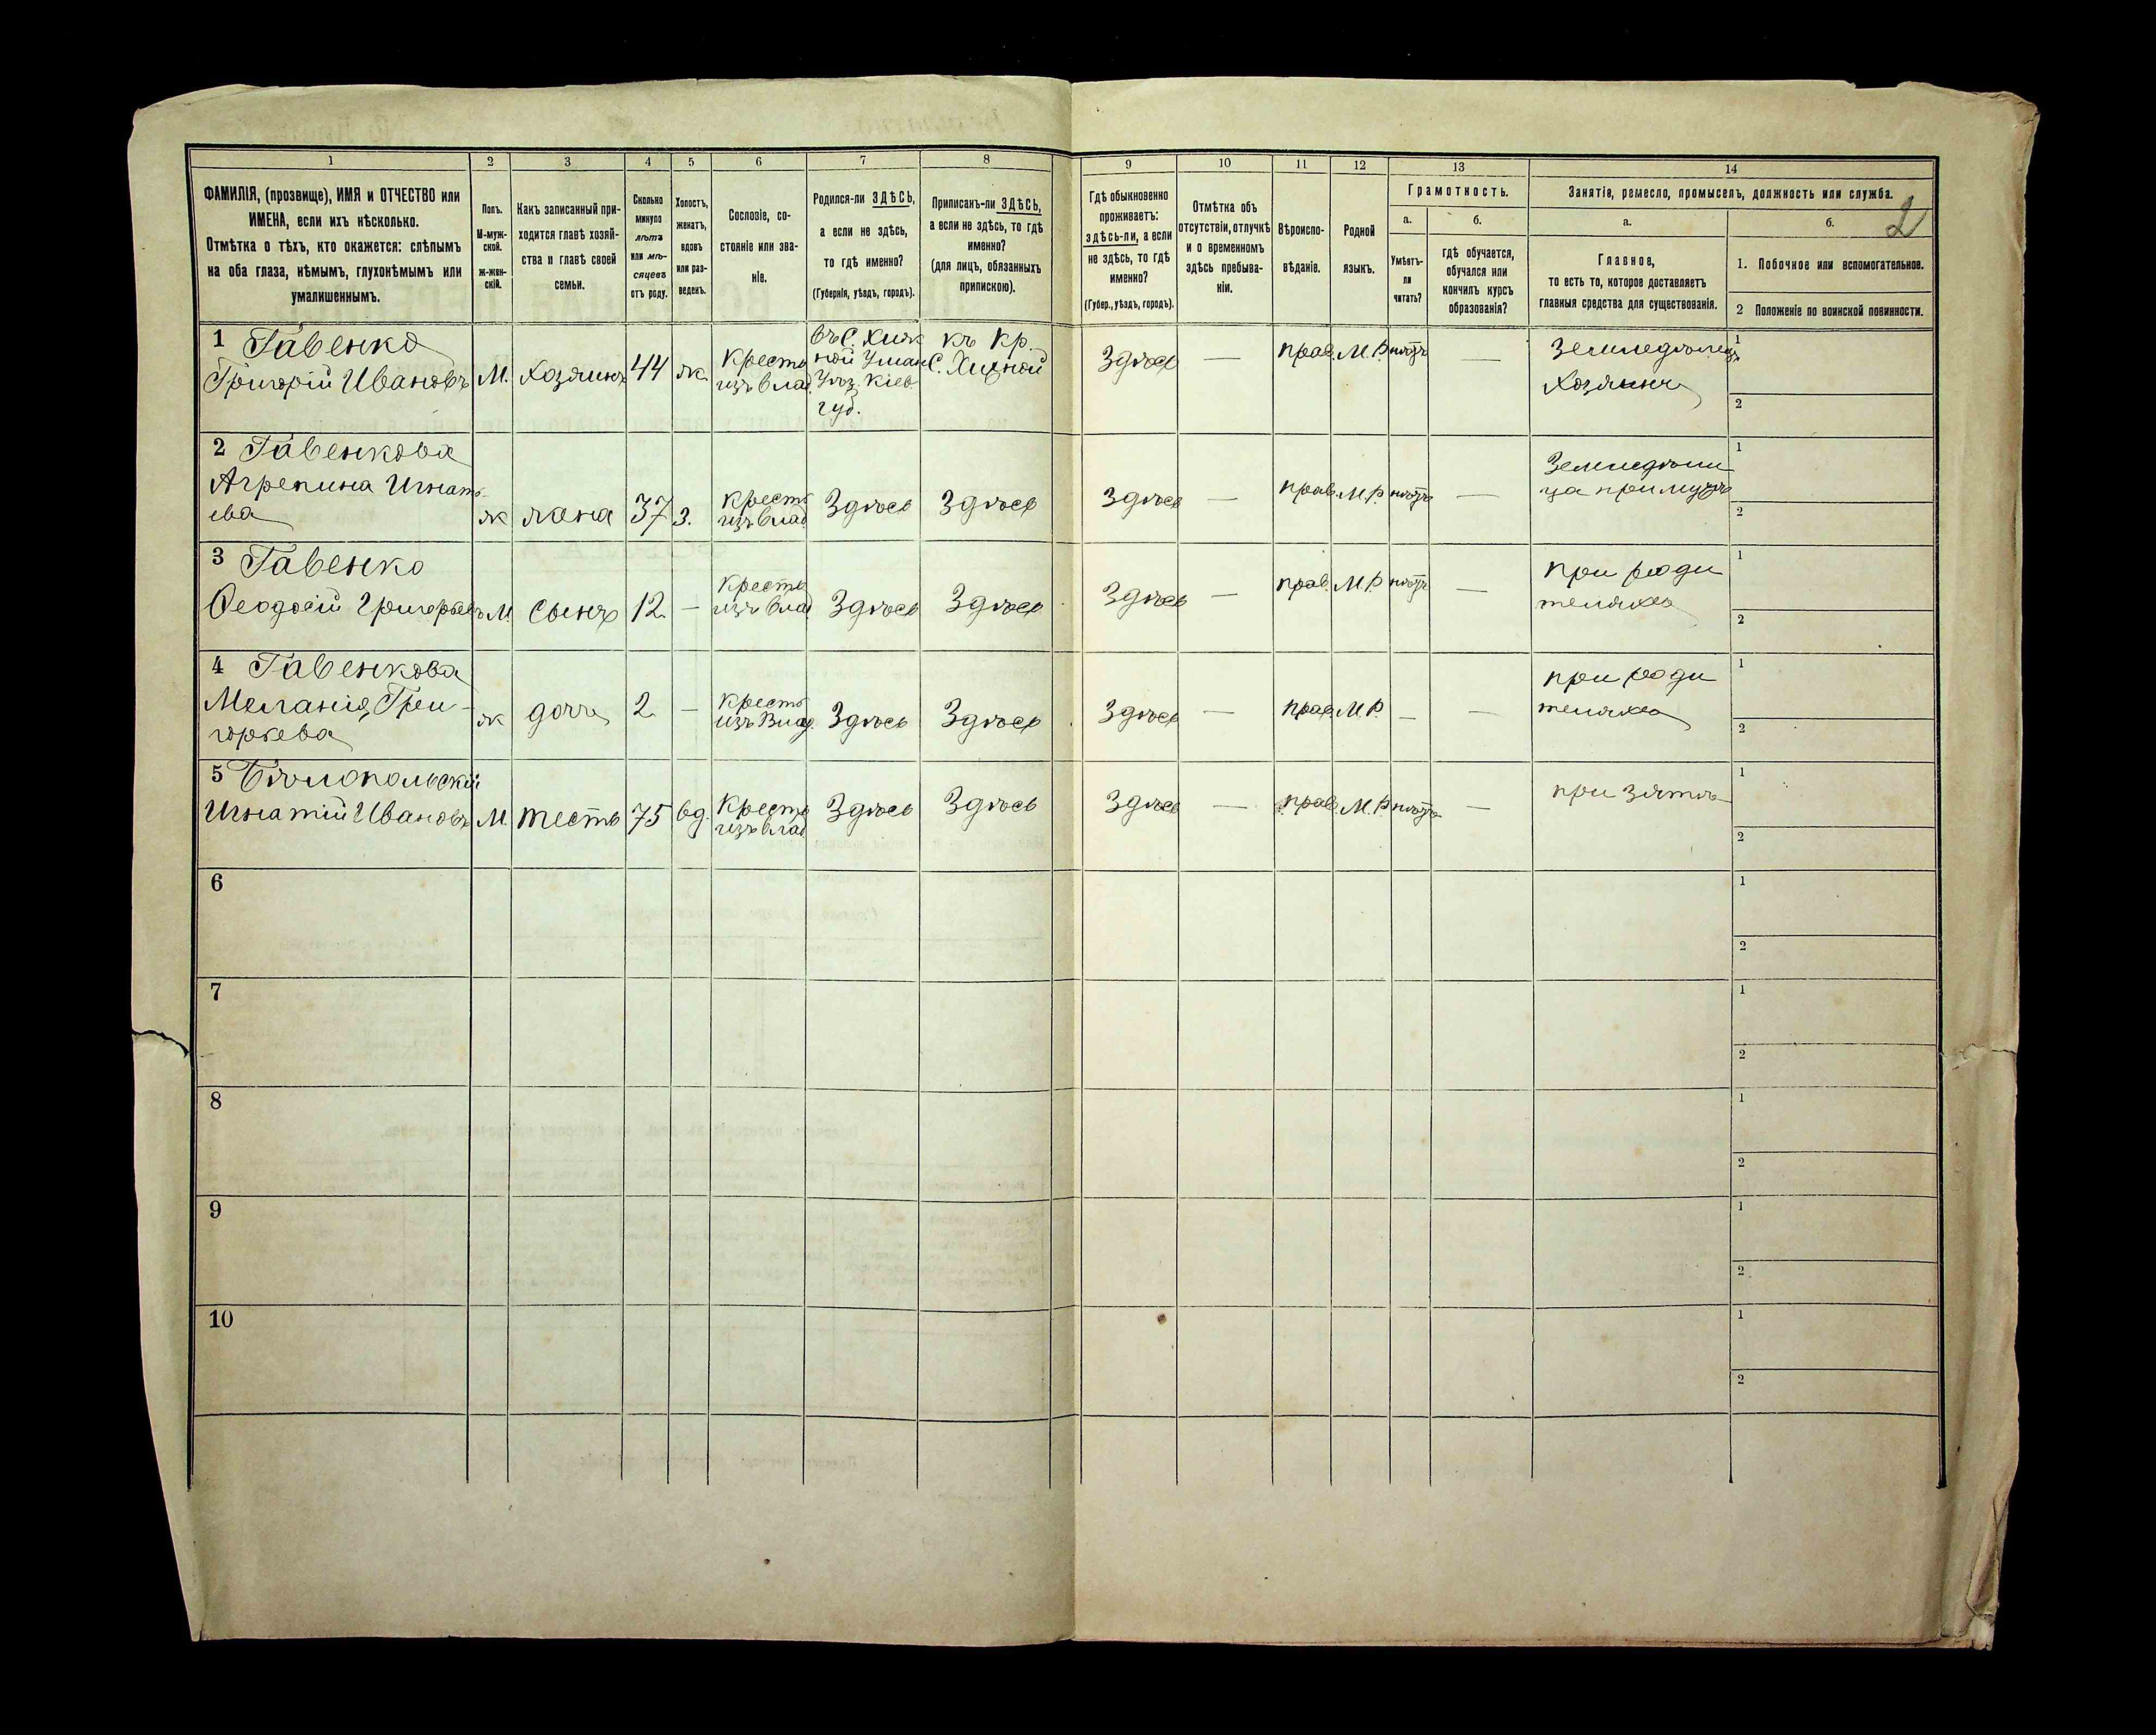 1
2
3
4
5
6
7
8
9
10
11
12
13
14
ФАМИЛІЯ, (прозвище), ИМЯ и ОТЧЕСТВО или
ИМЕНА, если ихъ нѣсколько.
Отмѣтка о тѣхъ, кто окажется: слѣпымъ
на оба глаза, нѣмымъ, глухонѣмымъ или
умалишеннымъ.
Полъ.
М-муж-
ской.
Ж-жен-
скій.
Какъ записанный при-
ходится главѣ хозяй-
ства и главѣ своей
семьи.
Сколько
минуло
лѣтъ
или мѣ-
сяцевъ
отъ роду.
Холостъ,
женатъ,
вдовъ
или раз-
веденъ.
Сословіе, со-
стояніе или зва-
ніе.
Родился-ли ЗДѢСЬ,
а если не здѣсь,
то гдѣ именно?
(Губернія, уѣздъ, городъ).
Приписанъ-ли ЗДѢСЬ,
а если не здѣсь, то гдѣ
именно?
(для лицъ, обязанныхъ
припискою).
Гдѣ обыкновенно
проживаетъ:
здѣсь-ли, а если
не здѣсь, то гдѣ
именно?
(Губер., уѣздъ, городъ).
Отмѣтка объ
отсутствіи, отлучкѣ
и о временномъ
здѣсь пребыва-
ніи.
Вѣроиспо-
вѣданіе.
Родной
языкъ.
Грамотность.
а.
б.
Умѣетъ-
ли
читать?
гдѣ обучается,
обучался или
кончилъ курсъ
образованія?
Занятіе, ремесло, промыселъ, должность или служба.
2
а.
б.
Главное,
то есть то, которое доставляетъ
главныя средства для существованія.
1. Побочное или вспомогательное.
2 Положеніе по воинской повинности.
1 Гавенко
Григорій Ивановъ
М.
Хозяинъ
44
ж.
Крестъ
изъ влад.
въ С. Хиж
ной Уман
Уѣз. Кіев
губ.
къ Кр.
С. Хижной
Здѣсь
—
прав.
М.Р.
нѣтъ
—
Земледѣлецъ
Хозяинъ
1
2
2 Гавенкова
Агрепина Игнать-
ева
ж
жена
37
з.
крестъ
изъ влад.
Здѣсь
Здѣсь
Здѣсь
—
прав.
М.Р.
нѣтъ
—
Земледѣли
ца при мужѣ
1
2
3 Гавенко
Феодосій Григорьевъ
М.
сынъ
12
—
крестъ
изъ влад
Здѣсь
Здѣсь
Здѣсь
—
прав.
М.Р.
нѣтъ
—
при роди
теляхъ
1
2
4 Гавенкова
Меланія Гри-
горьева
ж
дочь
2
—
крестъ
изъ Влад.
Здѣсь
Здѣсь
Здѣсь
—
прав.
М.Р.
—
—
при роди
теляхъ
1
2
5 Бѣлопольскій
Игнатій Ивановъ
М.
тесть
75
вд.
Крестъ
изъ влад
Здѣсь
Здѣсь
Здѣсь
—
прав.
М.Р.
нѣтъ
—
при зятѣ
1
2
6
1
2
7
1
2
8
1
2
9
1
2
10
1
2